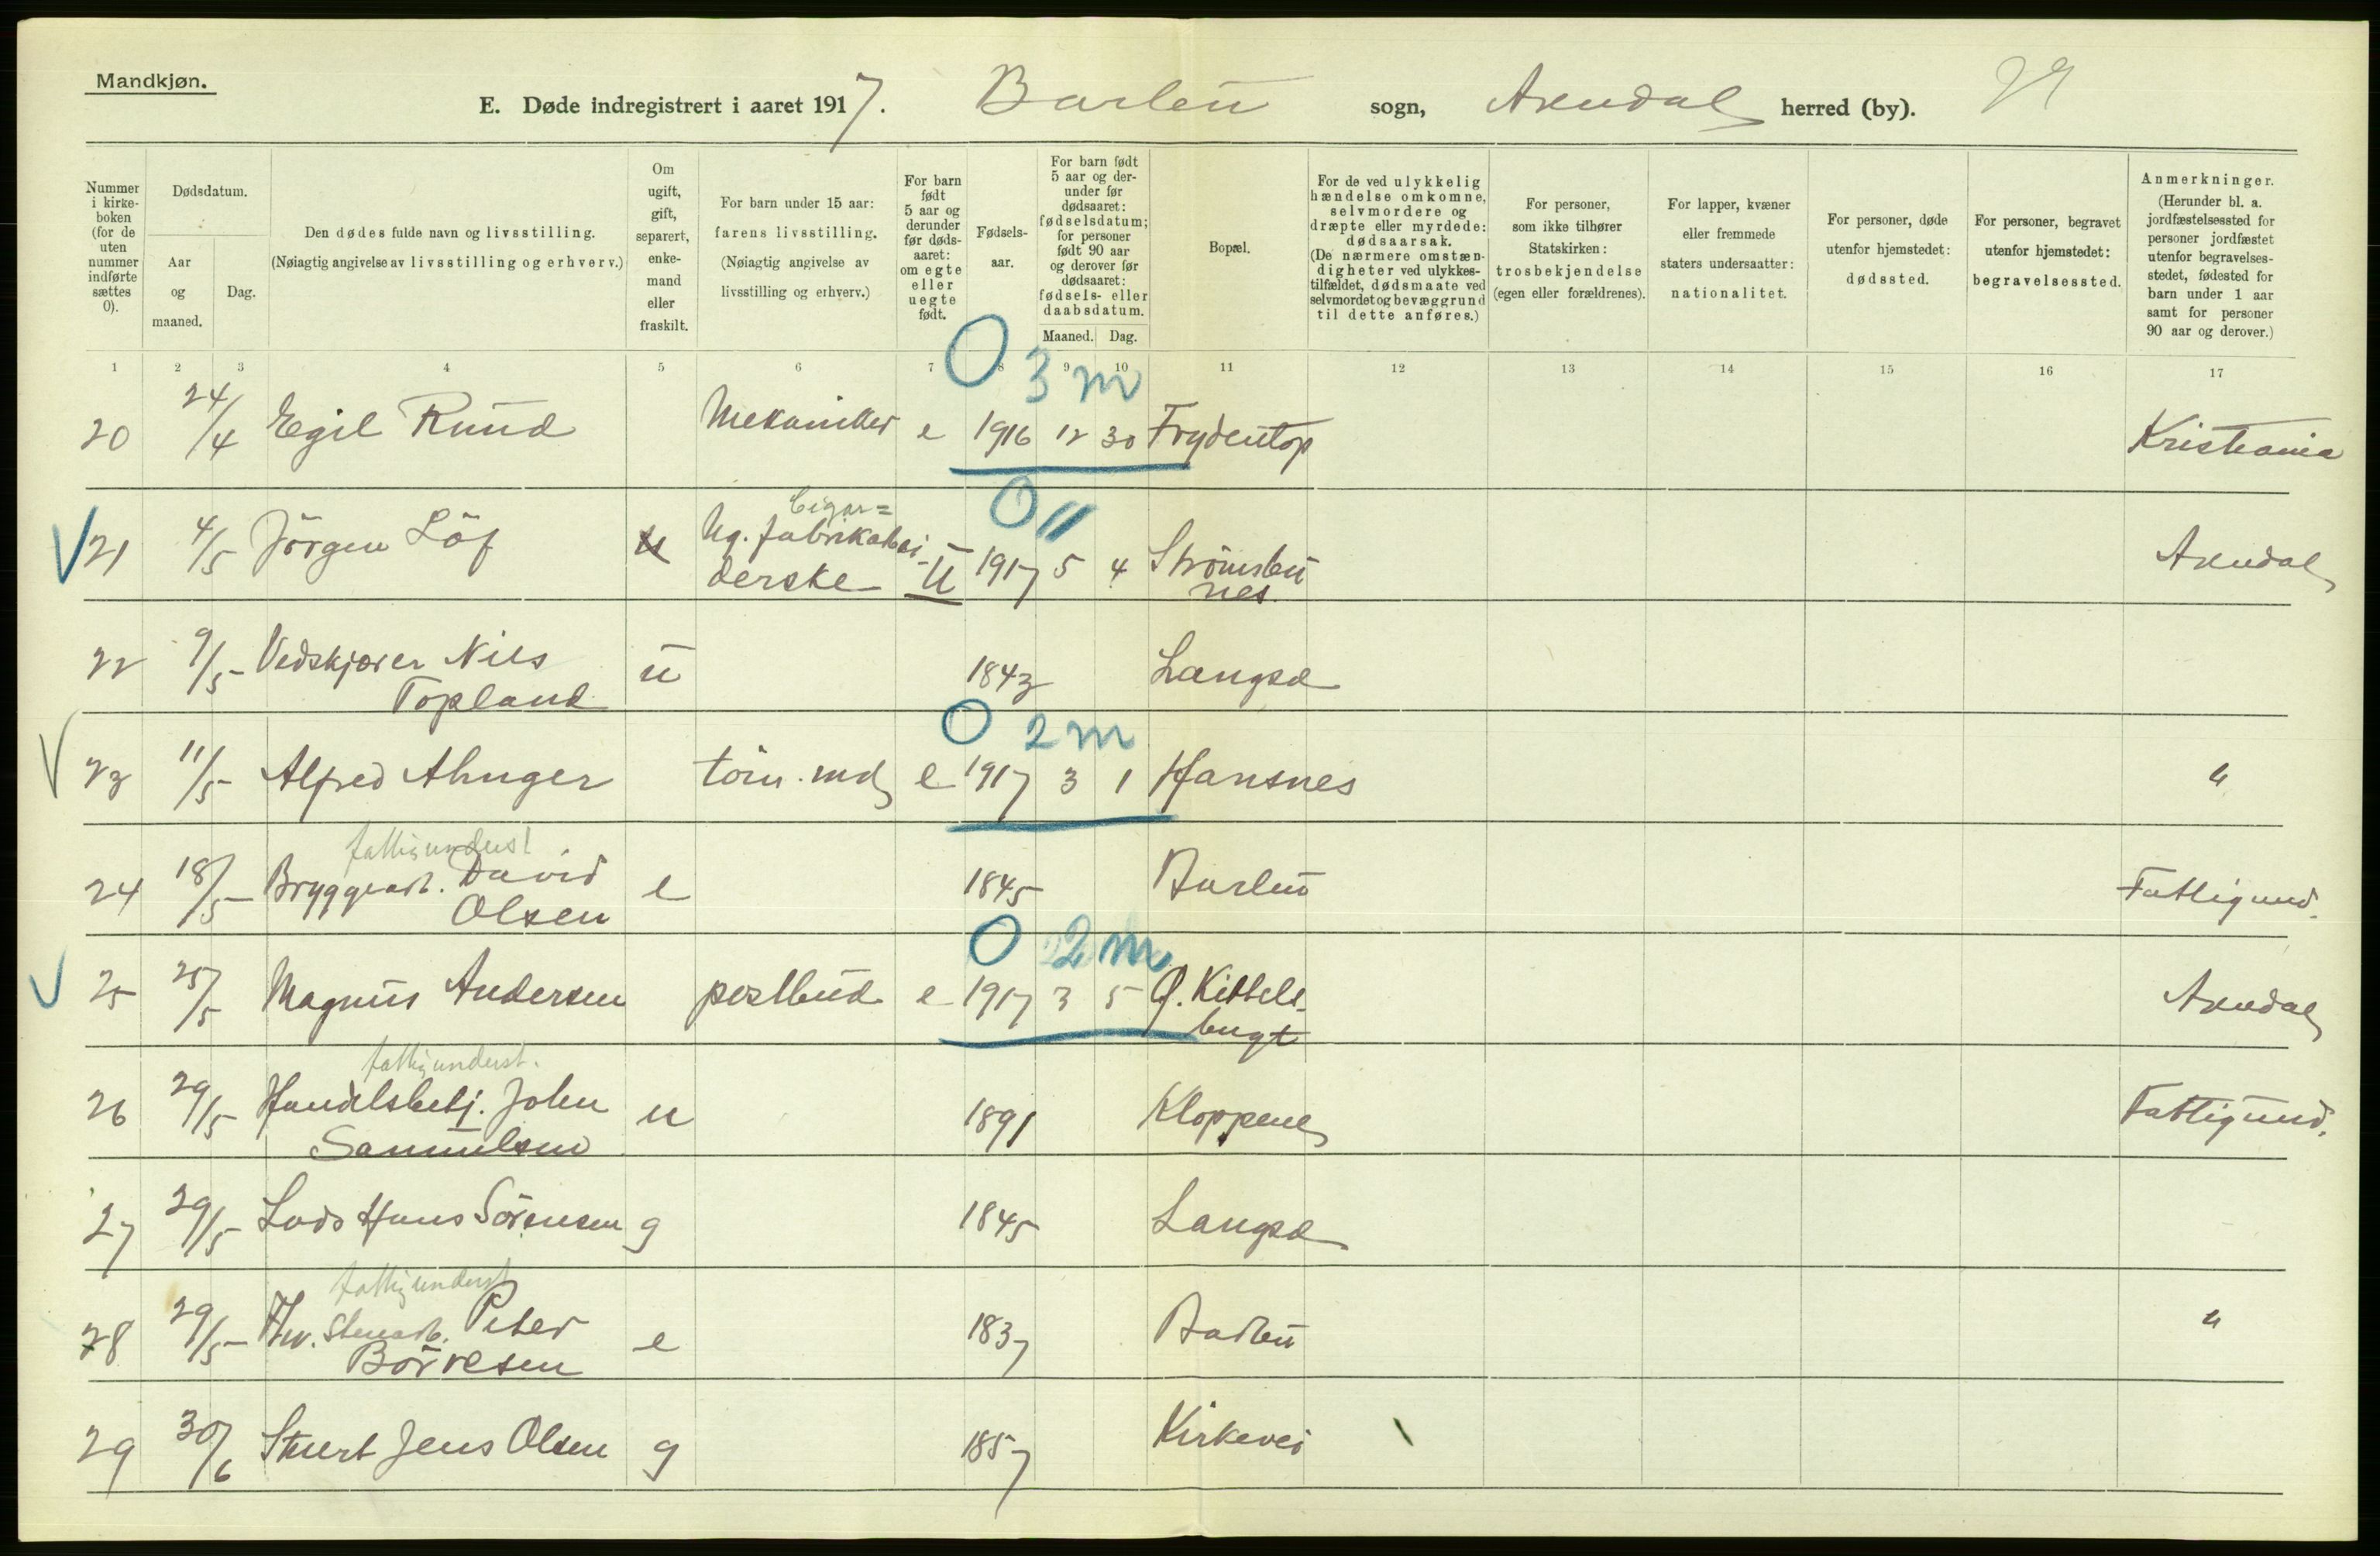 Mandkjøn.
E. Døde indregistrert i aaret 1917. Barbu sogn, Arendal herred (by).
Nummer i kirkeboken (for de uten nummer indførte sættes 0).
Dødsdatum.
Aar og maaned.
Dag.
Den dødes fulde navn og livsstilling.
(Nøiagtig angivelse av livsstilling og erhverv.)
Om ugift, gift, separert, enkemand eller fraskilt.
For barn under 15 aar: farens livsstilling. (Nøiagtig angivelse av livsstilling og erhverv.)
For barn født 5 aar og derunder før dødsaaret: om egte eller uegte født.
Fødselsaar.
For barn født 5 aar og derunder før dødsaaret: fødselsdatum; for personer født 90 aar og derover før dødsaaret: fødsels- eller daabsdatum.
Maaned. Dag.
Bopæl.
For de ved ulykkelig hændelse omkomne, selvmordere og dræpte eller myrdede: dødsaarsak. (De nærmere omstændigheter ved ulykkestilfældet, dødsmaate ved selvmordet og bevæggrund til dette anføres.)
For personer, som ikke tilhører Statskirken: trosbekjendelse (egen eller forældrenes).
For lapper, kvæner eller fremmede staters undersaatter: nationalitet.
For personer, døde utenfor hjemstedet: dødssted.
For personer, begravet utenfor hjemstedet: begravelsessted.
Anmerkninger. (Herunder bl. a. jordfæstelsessted for personer jordfæstet utenfor begravelsesstedet, fødested for barn under 1 aar samt for personer 90 aar og derover.)
1 2 3 4 5 6 7 8 9 10 11 12 13 14 15 16 17
0 3 m
20 24/4 Egil Ruud Mekaniker e 1916 12 30 Frydentop Kristiania
0 11
Cigar=
21 4/5 Jörgen Löf u Ug. fabrikabei- U 1917 5 4 Strömsbu Arendal
derske nes
22 9/5 Vedskjærer Nils u 1843 Langsæ
Topland
0 2 m
23 11/5 Alfred Ahnger töm.md e 1917 3 1 Hansnes "
fattigunderst
24 18/5 Bryggearb. David e 1845 Barbu Fattigund.
Olsen
0 2 m
25 25/5 Magnus Andersen postbud e 1917 3 5 Q. Kittels-
bugt Arendal
fattigunderst.
26 29/5 Handelsbetj. John u 1891 Kloppene Fattigund.
Samuelsen
27 29/5 Lods Hans Sörensen g 1845 Langsæ
fattigunderst
28 29/5 Fhv. Stenarb. Peter e 1837 Barbu "
Börresen
29 30/6 Stuert Jens Olsen g 1857 Kirkevei